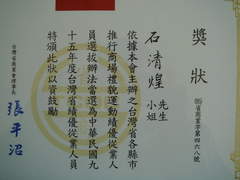 獎狀
(85)省商業字第四六八號
石清煌 先生
小姐
依據本會主辦之台灣省各縣市
推行商場禮貌運動績優從業人
員選拔辦法當選為中華民國九
十五年度台灣省績優從業人員
特頒此狀以資鼓勵
台灣省商業會理事長
張平沼